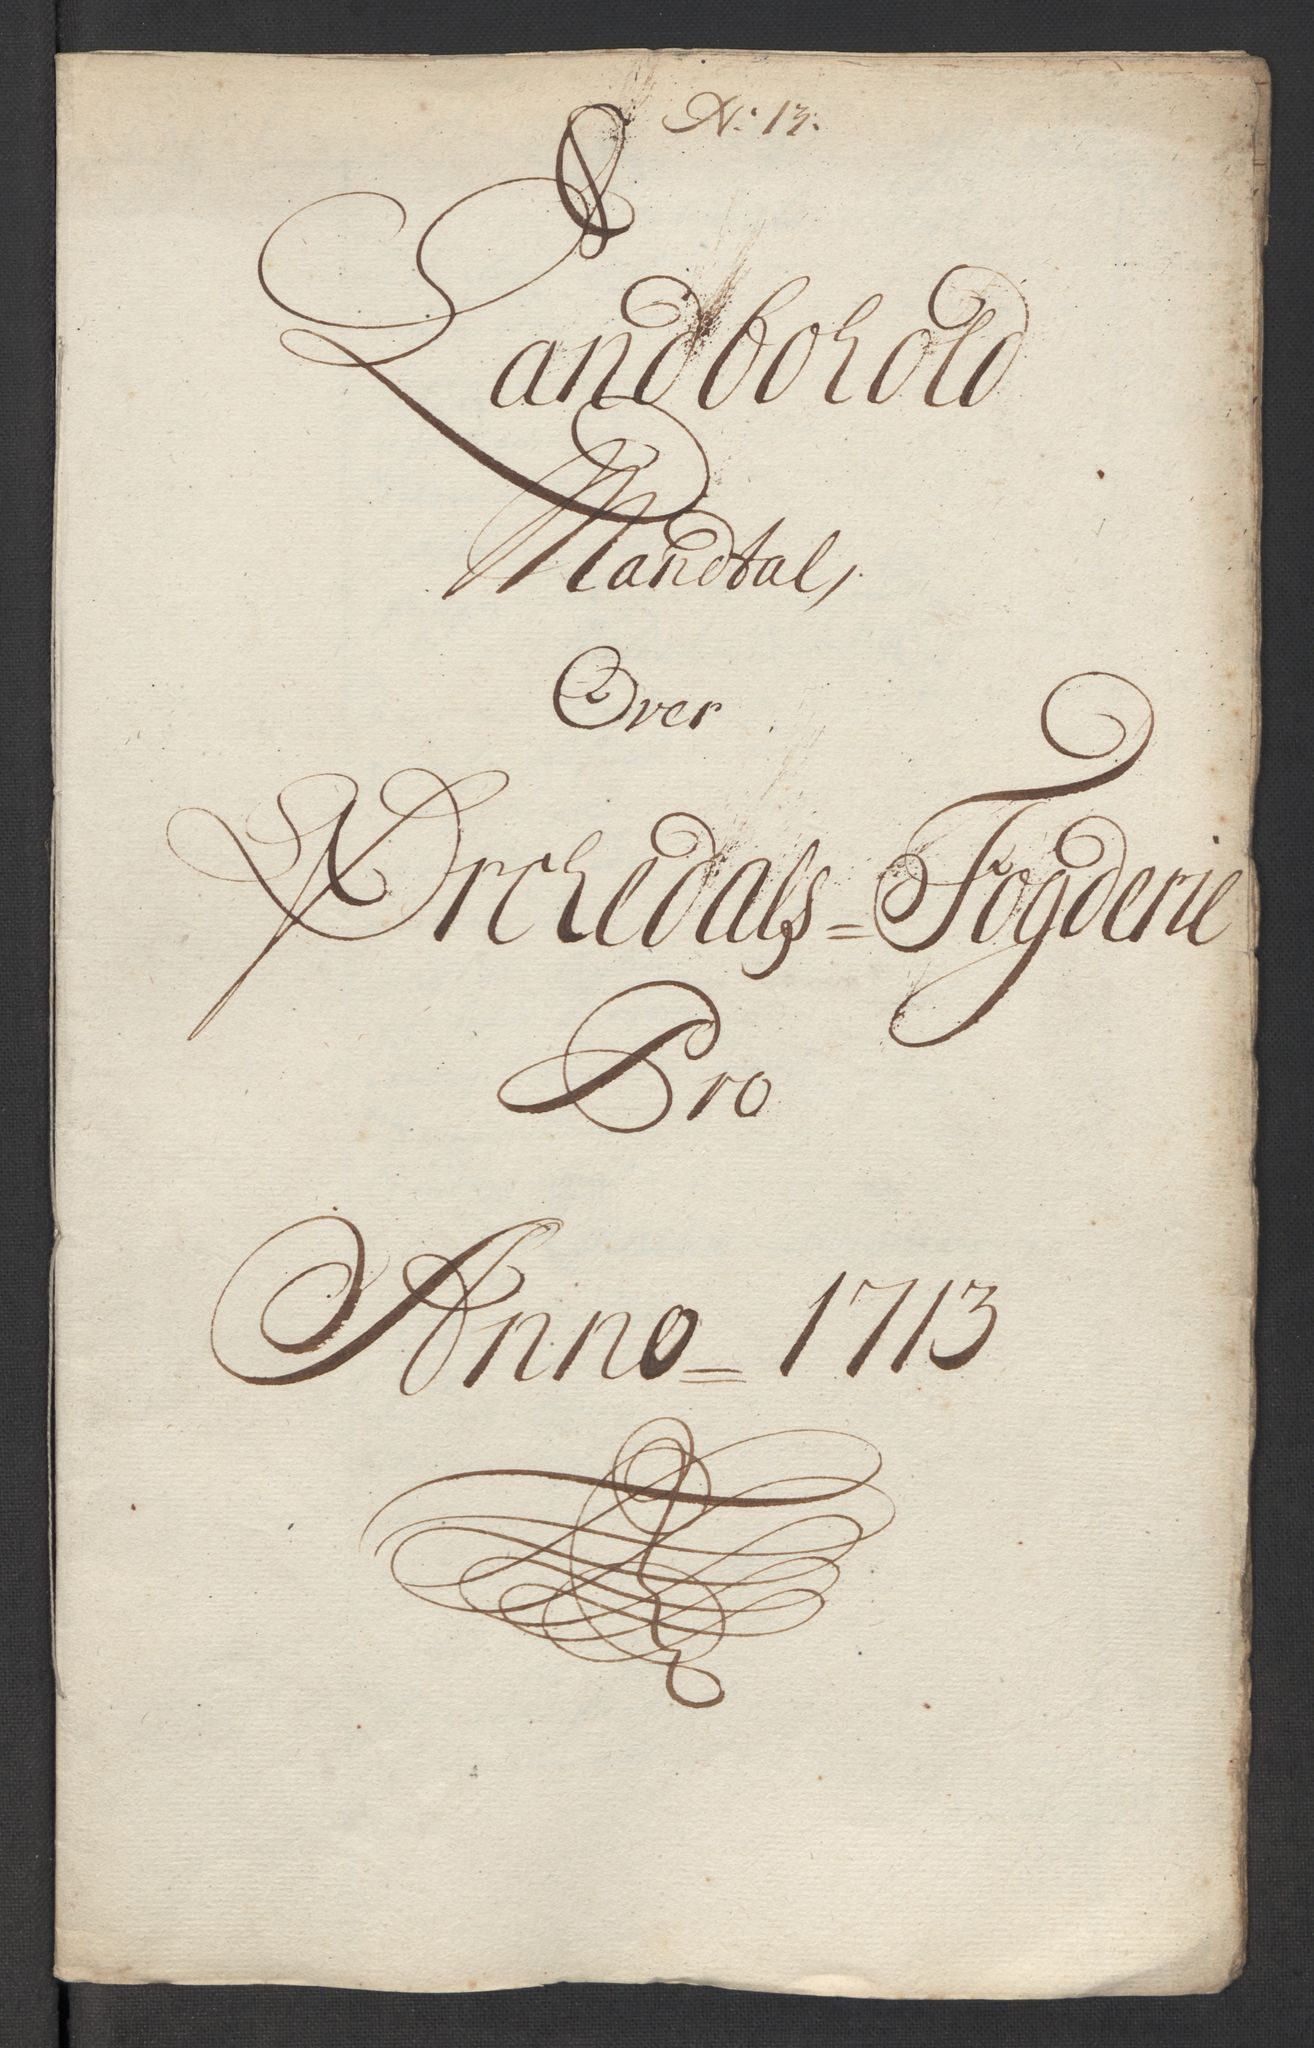 N: 13.
Landbohold
Mandtal,
Over
Ørchedals=Fogderie
Pro
Anno=1713